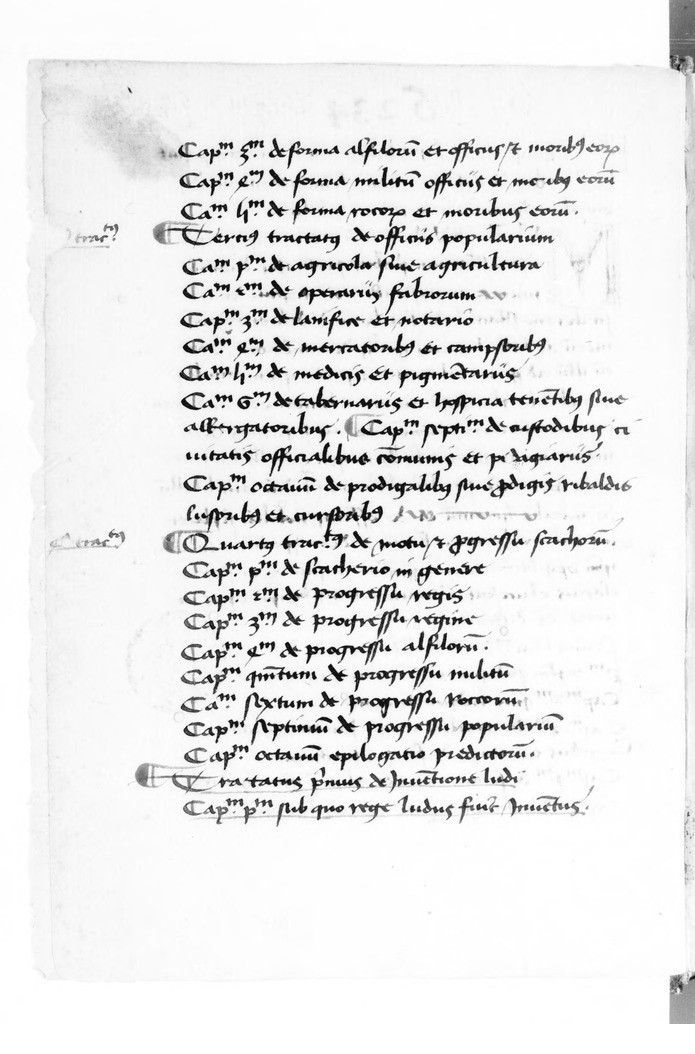 Capᵐ 3ᵐ de forma alfiloꝝ et officiis / ⁊ moribꝰ eoꝝ
Capᵐ 4ᵐ de forma militū officiis et moribꝰ eorū
Caᵐ 5ᵐ de forma rocoꝝ et moribus eorū.
tracᵗꝰ
Terciꝰ tractatꝰ de officiis popularium
Caᵐ pᵐ de agricola siue agricultura
Caᵐ 2ᵐ de operariis fabrorum
Capᵐ 3ᵐ de lanifice et notario
Caᵐ 4ᵐ de mercatoribꝰ et campsoribꝰ
Caᵐ 5ᵐ de medicis et pigmētariis
Caᵐ 6ᵐ de tabernariis et hospicia tenētibꝰ siue
albergatoribus. Capᵐ septiᵐ de custodibus ci
uitatis officialibus cōmunis et
Capᵐ octauū de prodigalibꝰ siue ꝓdigis ribaldis
lusoribꝰ et cursoribꝰ
4 tracᵗꝰ
Quartꝰ tracᵗꝰ de motu ⁊ ꝓgressu scachorū.
Capᵐ pᵐ de scacherio in genere
Capᵐ 2ᵐ de progressu regis
Capᵐ 3ᵐ de progressu regine
Capᵐ 4ᵐ de progressu alfilorū.
Capᵐ quītum de progressu militū
Caᵐ sextum de progressu roccorū
Capᵐ septimū de progressu populariū
Capᵐ octauū epilogatio predictorū.
Tractatus p̄mus de Inuētione ludi
Capᵐ pᵐ sub quo rege ludus fuit Inuētus.